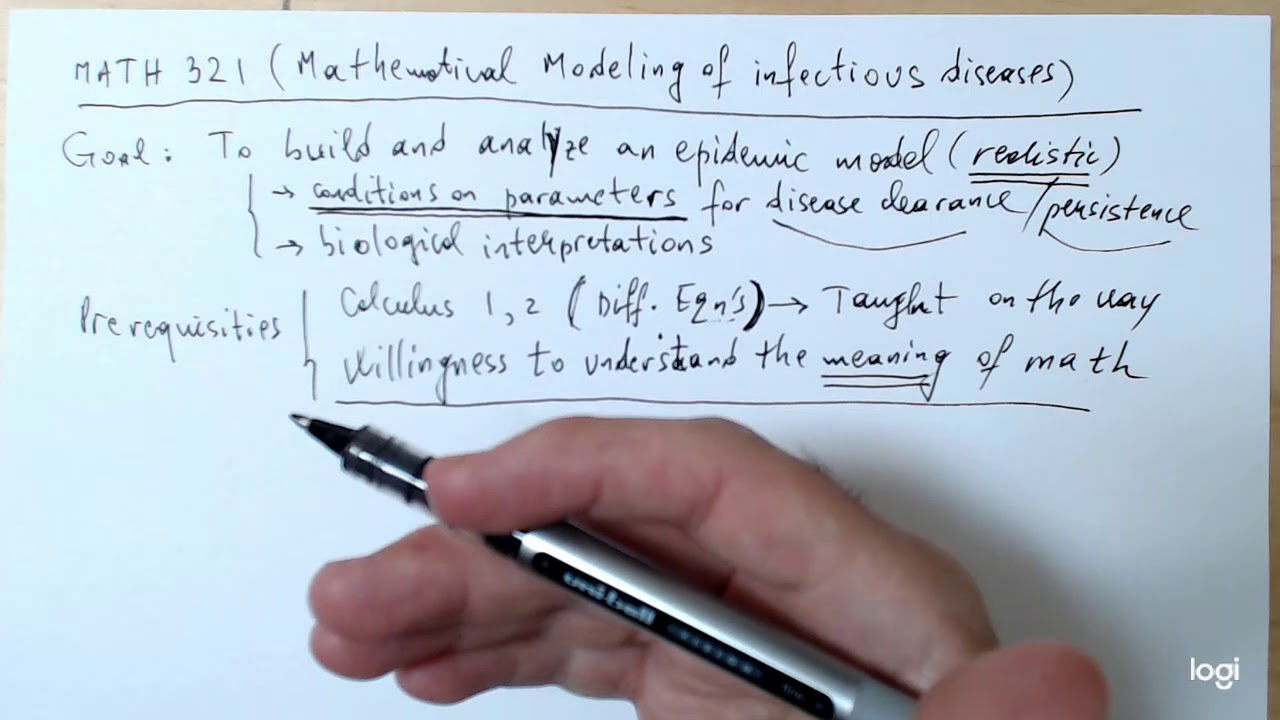 MATH 321 (Mathematical Modeling of infectious diseases)
Goal: To build and analyze an epidemic model (realistic)
→ conditions on parameters for disease clearance/persistence
→ biological interpretations
Prerequisities
Calculus 1, 2 (Diff. Eqn's) → Taught on the way
Willingness to understand the meaning of math
uni-ball
logi